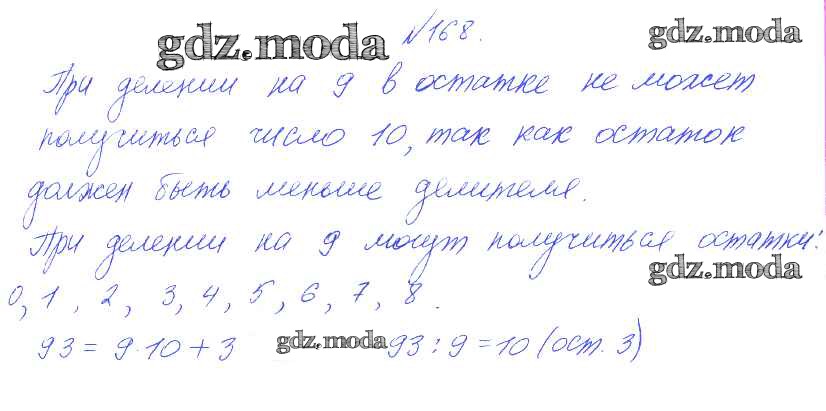 gdz.moda №168. gdz.moda
При делении на 9 в остатке не может
получиться число 10, так как остаток
должен быть меньше делителя.
При делении на 9 могут получиться остатки:
gdz.moda
0, 1, 2, 3, 4, 5, 6, 7, 8.
93 = 9·10 + 3 gdz.moda 93 : 9 = 10 (ост. 3)